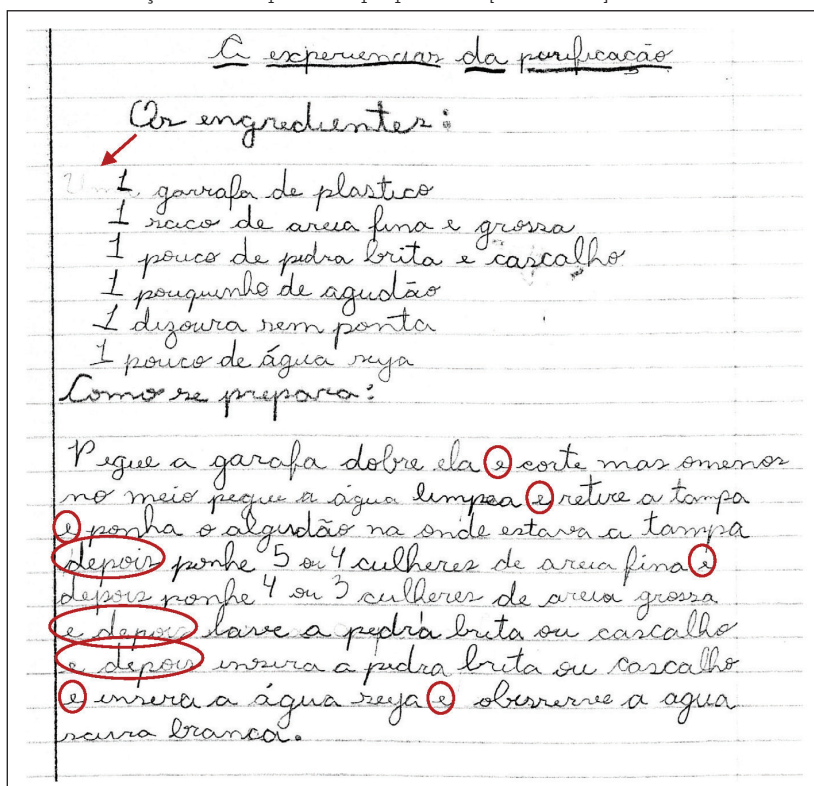 A experiencias da purificação
Os engredientes:
1 garrafa de plastico
1 saco de areia fina e grossa
1 pouco de pedra brita e cascalho
1 pouquinho de agudão
1 dizoura sem ponta
1 pouco de água suja
Como se prepara:
Pegue a garafa dobre ela e corte mas omenos
no meio pegue a água limpea e retire a tampa
e ponha o algudão na onde estava a tampa
depois ponhe 5 ou 4 culheres de areia fina e
depois ponhe 4 ou 3 culheres de areia grossa
e depois lave a pedra brita ou cascalho
e depois insira a pedra brita ou cascalho
e insera a água suja e obsserve a agua
saira branca.